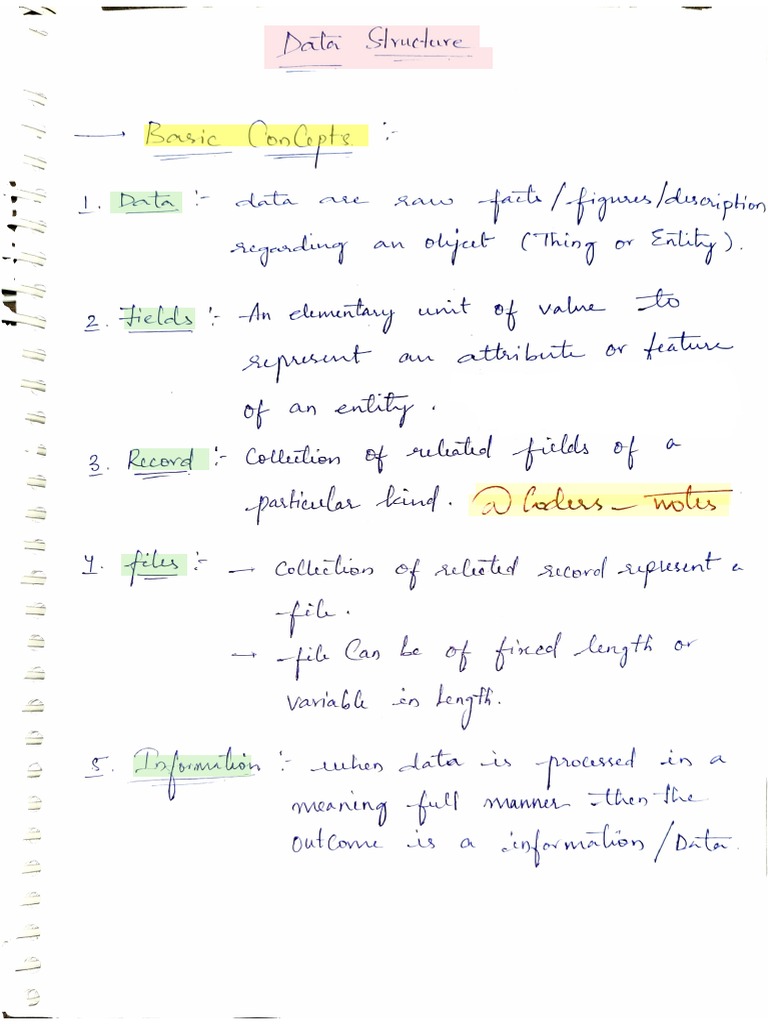 Data Structure
→ Basic Concepts :-
1. Data :- data are raw facts/figures/discription
regarding an object (Thing or Entity).
2. Fields :- An elementary unit of value to
represent an attribute or feature
of an entity.
3. Record :- Collection of releated fields of a
particular kind. @Coders_notes
4. files :- → Collection of releted record represent a
file.
→ file Can be of fixed length or
variable in length.
5. Information :- when data is processed in a
meaning full manner then the
outcome is a information/Data.